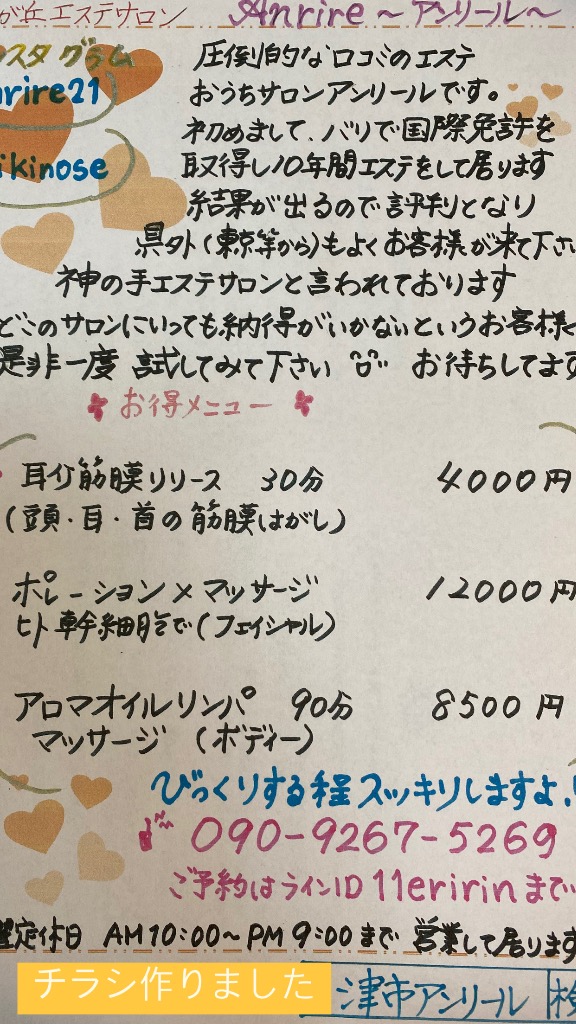 が丘エステサロン Anrire～アンリール～
スタグラム
nrire21
ikinose
圧倒的な口コミのエステ
おうちサロンアンリールです。
初めまして、バリで国際免許を
取得し10年間エステをして居ります
結果が出るので評判となり
県外(東京等から)もよくお客様が来て下さい
神の手エステサロンと言われております
どこのサロンにいっても納得がいかないというお客様
是非一度 試してみて下さい お待ちしてます
お得メニュー
耳介筋膜リリース 30分 4000円
(頭・耳・首の筋膜はがし)
ポレーション×マッサージ 12000円
ヒト幹細胞で(フェイシャル)
アロマオイルリンパ 90分 8500円
マッサージ (ボディー)
びっくりする程スッキリしますよ!
090-9267-5269
ご予約はラインID 11eririnまで
定休日 AM10:00～PM9:00まで 営業して居ります
チラシ作りました
津市アンリール 検